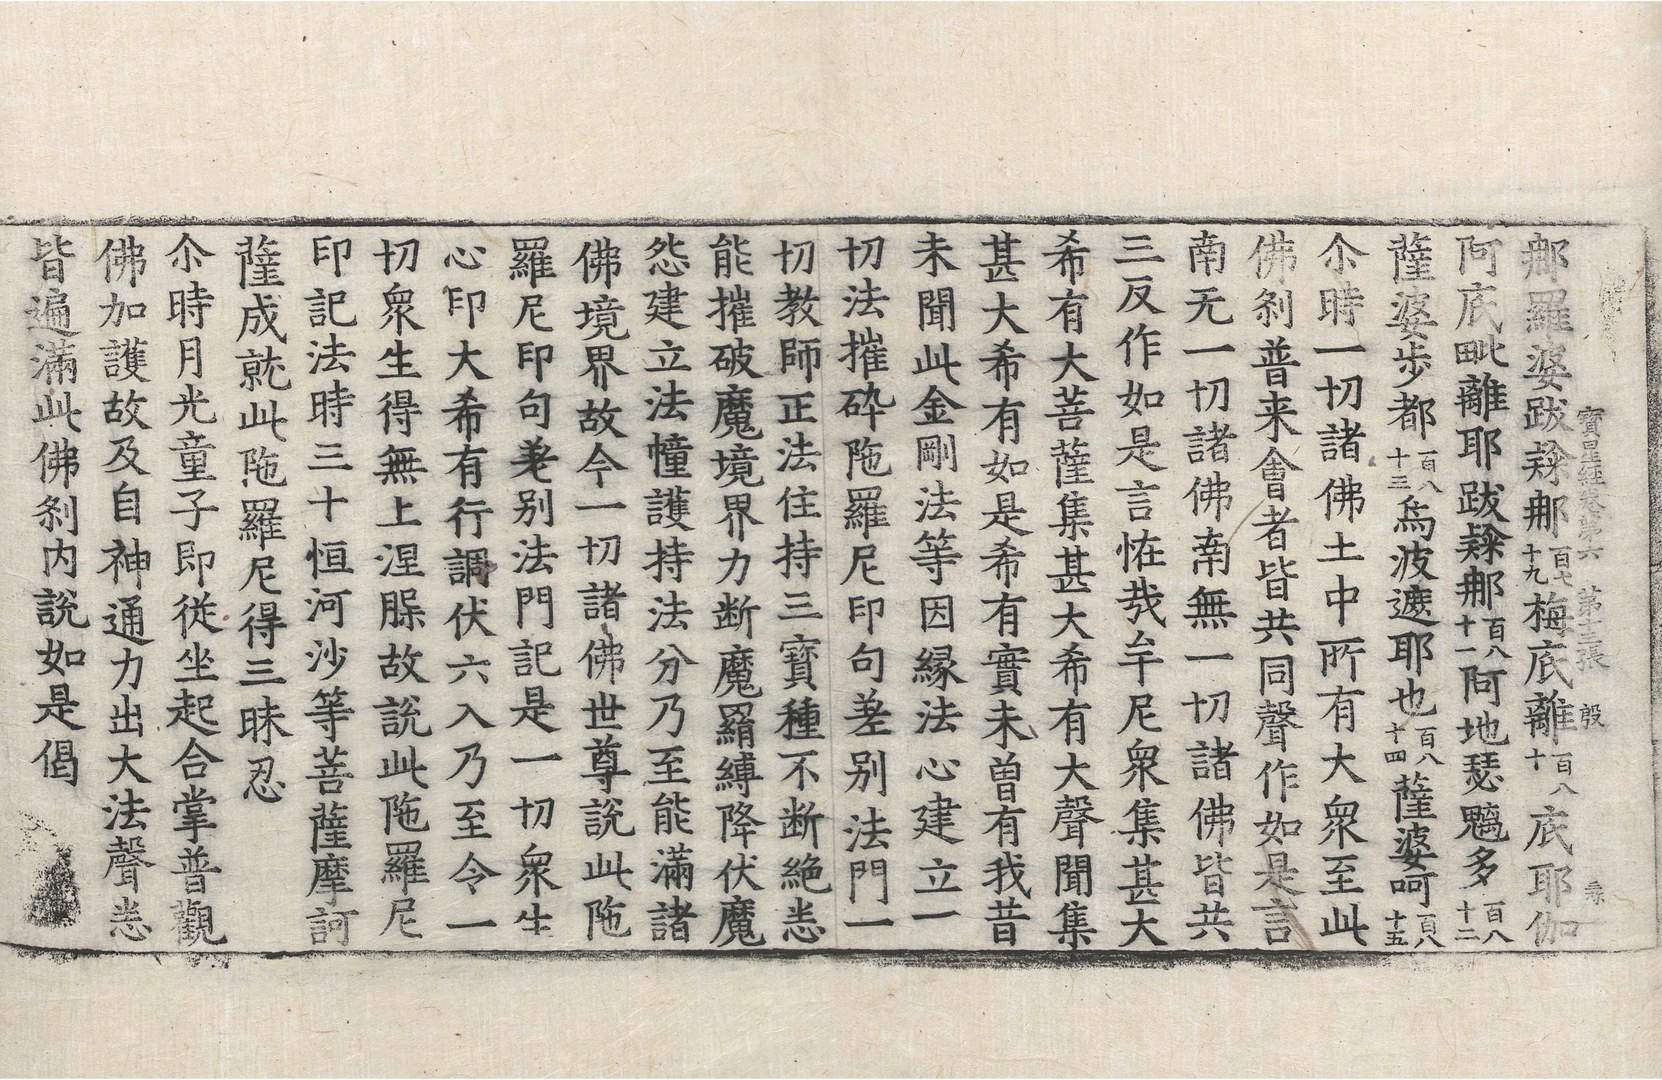 寶星經卷第六 第十三張 㲉
郍羅婆跋𨅖郍百七十九梅底離百八十底耶伽
阿底毗離耶跋𨅖郍百八十一阿地瑟魑多百八十二
薩婆步都百八十三烏波遮耶也百八十四薩婆呵百八十五
尒時一切諸佛土中所有大衆至此
佛剎普来會者皆共同聲作如是言
南无一切諸佛南無一切諸佛皆共
三反作如是言恠哉牟尼衆集甚大
希有大菩薩集甚大希有大聲聞集
甚大希有如是希有實未曽有我昔
未聞此金剛法等因縁法心建立一
切法摧碎陁羅尼印句差别法門一
切教師正法住持三寶種不断絶悉
能摧破魔境界力断魔羂縛降伏魔
怨建立法幢護持法分乃至能滿諸
佛境界故今一切諸佛世尊説此陁
羅尼印句差别法門記是一切衆生
心印大希有行調伏六入乃至令一
切衆生得無上涅脲故説此陁羅尼
印記法時三十恒河沙等菩薩摩訶
薩成就此陁羅尼得三昧忍
尒時月光童子即從坐起合掌普觀
佛加護故及自神通力出大法聲悉
皆遍滿此佛剎内説如是偈